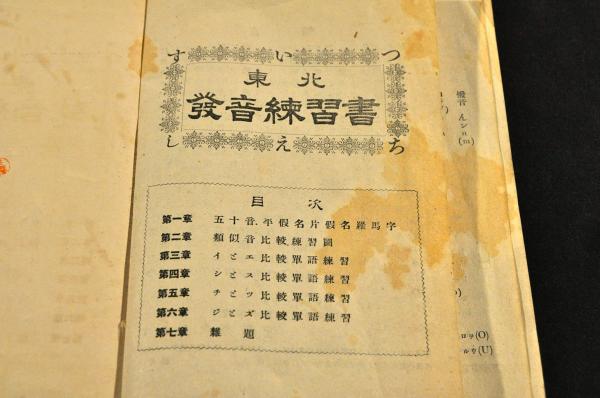 す い つ
東北
發音練習書
し え ち
目次
第一章 五十音平假名片假名羅馬字
第二章 類似音比較練習圖
第三章 イとエ比較單語練習
第四章 シとス比較單語練習
第五章 チとツ比較單語練習
第六章 ジとズ比較單語練習
第七章 雜題
撥音 んン
n
(m)
ヲ(O)
ルウ(U)